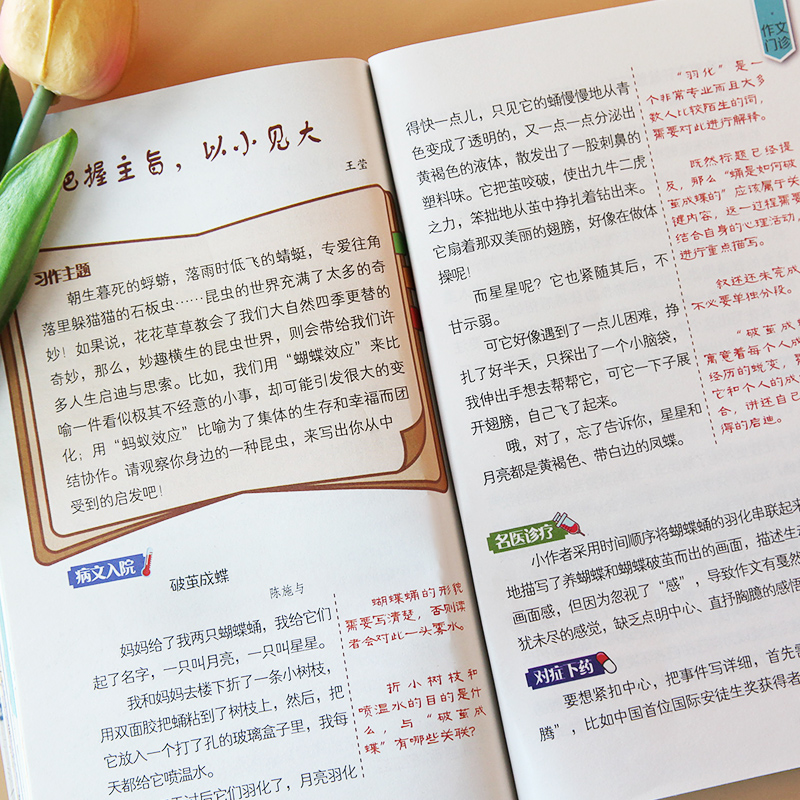 把握主旨，以小见大
王莹
习作主题
朝生暮死的蜉蝣，落雨时低飞的蜻蜓，专爱往角
落里躲猫猫的石板虫……昆虫的世界充满了太多的奇
妙！如果说，花花草草教会了我们大自然四季更替的
奇妙，那么，妙趣横生的昆虫世界，则会带给我们许
多人生启迪与思索。比如，我们用“蝴蝶效应”来比
喻一件看似极其不经意的小事，却可能引发很大的变
化；用“蚂蚁效应”比喻为了集体的生存和幸福而团
结协作。请观察你身边的一种昆虫，来写出你从中
受到的启发吧！
病文入院
破茧成蝶
陈施与
妈妈给了我两只蝴蝶蛹，我给它们
起了名字，一只叫月亮，一只叫星星。
我和妈妈去楼下折了一条小树枝，
用双面胶把蛹粘到了树枝上，然后，把
它放入一个打了孔的玻璃盒子里，我每
天都给它喷温水。
过后它们羽化了，月亮羽化
蝴蝶蛹的形貌
需要写清楚，否则读
者会对此一头雾水。
折小树枝和
喷温水的目的是什
么，与“破茧成
蝶”有哪些关联？
作文
门诊
得快一点儿，只见它的蛹慢慢地从青
色变成了透明的，又一点一点分泌出
黄褐色的液体，散发出了一股刺鼻的
塑料味。它把茧咬破，使出九牛二虎
之力，笨拙地从茧中挣扎着钻出来。
它扇着那双美丽的翅膀，好像在做体
操呢！
而星星呢？它也紧随其后，不
甘示弱。
可它好像遇到了一点儿困难，挣
扎了好半天，只探出了一个小脑袋，
我伸出手想去帮帮它，可它一下子展
开翅膀，自己飞了起来。
哦，对了，忘了告诉你，星星和
月亮都是黄褐色、带白边的凤蝶。
“羽化”是一
个非常专业而且大多
数人比较陌生的词，
需要对此进行解释。
既然标题已经提
及，那么“蛹是如何破
茧成蝶的”应该属于关
键内容，这一过程需要
结合自身的心理活动，
进行重点描写。
叙述还未完成
不必要单独分段。
“破茧成
寓意着每个人成
经历的蜕变，
它和个人的成
合，讲述自己
得的启迪。
名医诊疗
小作者采用时间顺序将蝴蝶蛹的羽化串联起来
地描写了养蝴蝶和蝴蝶破茧而出的画面，描述生
画面感，但因为忽视了“感”，导致作文有戛然
犹未尽的感觉，缺乏点明中心、直抒胸臆的感悟
对症下药
要想紧扣中心，把事件写详细，首先需
腾”，比如中国首位国际安徒生奖获得者